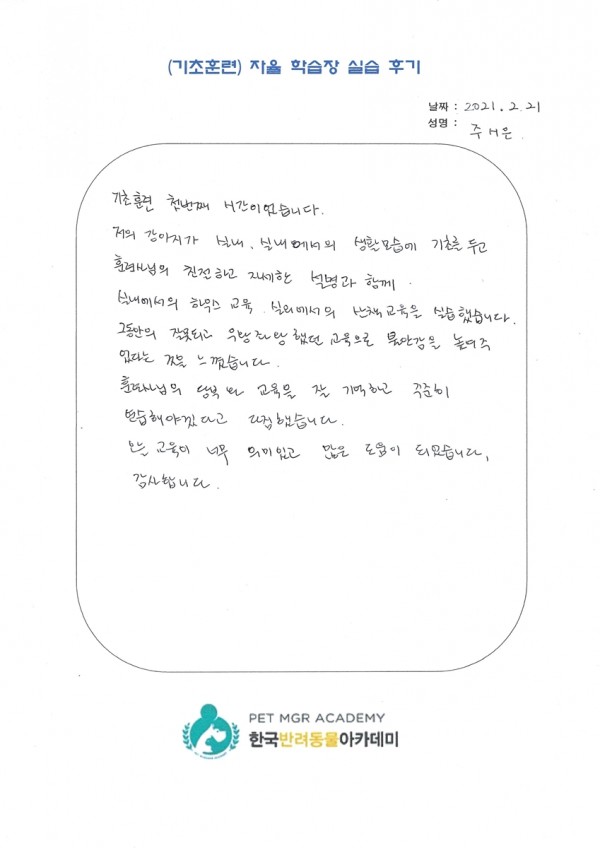 (기초훈련) 자율 학습장 실습 후기
날짜 : 2021. 2. 21
성명 : 주 은
기초훈련 첫번째 시간이었습니다.
저의 강아지가 실내, 실내에서의 생활모습에 기초를 두고
훈련사님의 친절하고 자세한 설명과 함께.
실내에서의 하우스 교육, 실외에서의 산책교육을 실습했습니다.
그동안의 잘못되고 우왕좌왕했던 교육으로 불안감을 높여주
었다는 것을 느꼈습니다.
훈련사님의 당부와 교육을 잘 기억하고 꾸준히
연습해야겠다고 다짐했습니다.
오늘 교육이 너무 의미있고 많은 도움이 되었습니다.
감사합니다.
PET MGR ACADEMY
한국반려동물아카데미